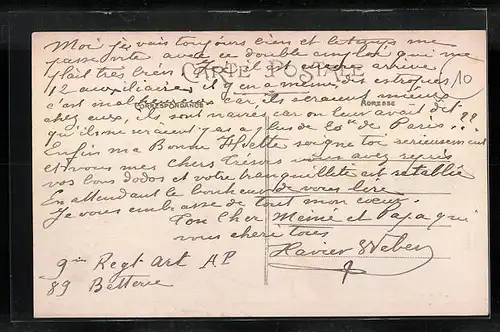 Moi je vais toujours bien et le temps me
passe vite avec ce double emploi qui me
plait très bien. Hier il est encore arrivé
CARTE POSTALE
12 auxiliaires il y en a même des estropiés 10
c'est malheureux car ils seraient mieux
CORRESPONDANCE ADRESSE
chez eux, ils sont navrés car on leur avait dit
qu'ils ne seraient pas a plus de 20 de Paris. ??
Enfin ma Bonne soigne toi sérieusement
et vous mes chers trésors vous avez repris
vos bons dodos et votre tranquillité est rétablie
En attendant le bonheur de vous lire
Je vous embrasse de tout mon coeur.
Ton Cher Mémé et Papa qui
vous cheri tous
Xavier Weber
9me Regt Art AP
89 Batterie